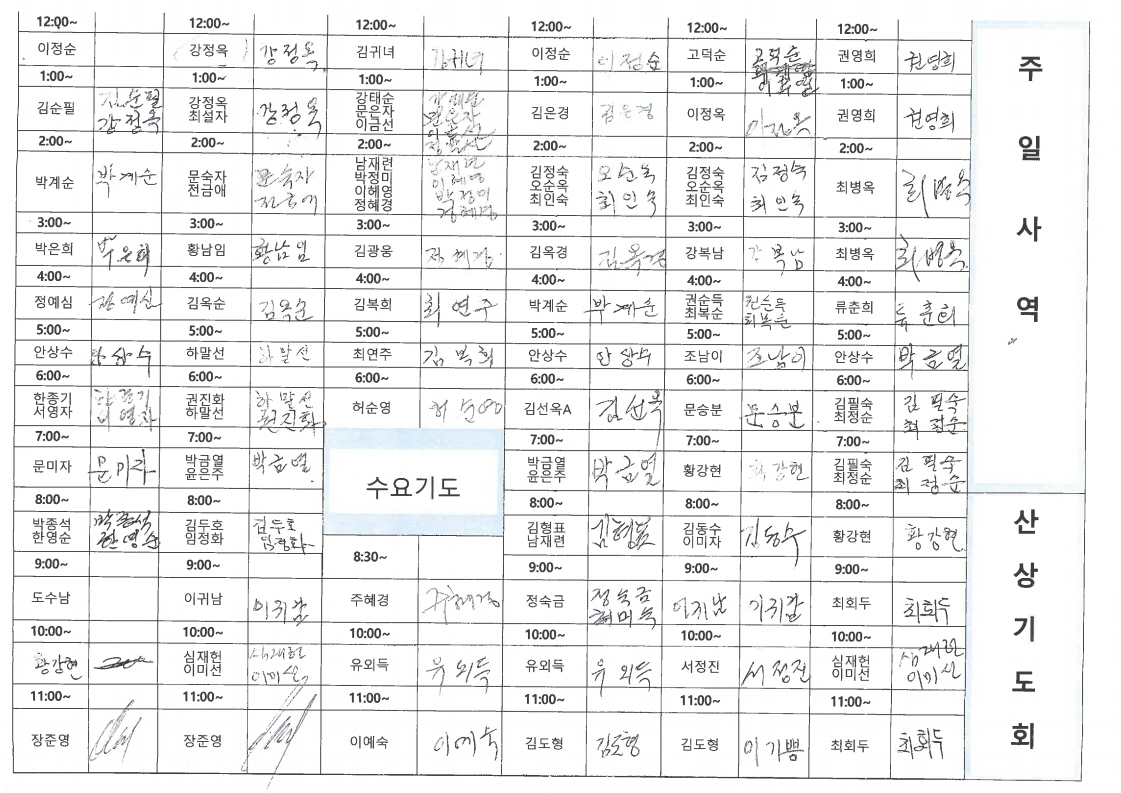 12:00~ 12:00~ 12:00~ 12:00~ 12:00~ 12:00~
이정순 강정옥 강정옥 김귀녀 김귀녀 이정순 이정순 고덕순 고덕순 권영희 권영희
1:00~ 1:00~ 1:00~ 1:00~ 1:00~ 1:00~
김순필 김순필 강정옥 강정옥 강태순 김은경 김은경 이정옥 이정옥 권영희 권영희
강정옥 최설자 문은자
이금선
2:00~ 2:00~ 2:00~ 2:00~ 2:00~ 2:00~
박계순 박계순 문숙자 문숙자 남재련 남재련 김정숙 오순옥 김정숙 김정숙 최병옥 최병옥
전금애 전금애 박정미 이혜영 오순옥 최인숙 오순옥 최인숙
이헤영 박정미 최인숙 최인숙
정혜경 정혜경
3:00~ 3:00~ 3:00~ 3:00~ 3:00~ 3:00~
박은희 박은희 황남임 황남임 김광웅 김옥경 김옥경 강복남 강복남 최병옥 최병옥
4:00~ 4:00~ 4:00~ 4:00~ 4:00~ 4:00~
정예심 정예심 김옥순 김옥순 김복희 최연주 박계순 박계순 권순득 권순득 류춘희 류춘희
최복순 최복순
5:00~ 5:00~ 5:00~ 5:00~ 5:00~ 5:00~
안상수 안상수 하말선 하말선 최연주 김복희 안상수 안상수 조남이 조남이 안상수 박금열
6:00~ 6:00~ 6:00~ 6:00~ 6:00~ 6:00~
한종기 권진화 하말선 허순영 허순영 김선옥A 김선옥 문승분 문승분 김필숙 김필숙
서영자 하말선 권진화 최정순 최정순
7:00~ 7:00~ 7:00~ 7:00~ 7:00~
문미자 문미자 박금열 박금열 수요기도 박금열 박금열 황강현 황강현 김필숙 김필숙
윤은주 윤은주 최정순 최정순
8:00~ 8:00~ 8:00~ 8:00~ 8:00~
박종석 박종석 김두호 김두호 김형표 김형표 김동수 김동수 황강현 황강현
한영순 한영순 임정화 임정화 남재련 이미자
9:00~ 9:00~ 8:30~ 9:00~ 9:00~ 9:00~
도수남 이귀남 이귀남 주혜경 주혜경 정숙금 정숙금 이귀남 최회두 최회두
허미숙
10:00~ 10:00~ 10:00~ 10:00~ 10:00~ 10:00~
황강현 심재헌 심재헌 유외득 유외득 유외득 유외득 서정진 서정진 심재헌 심재헌
이미선 이미선 이미선 이미선
11:00~ 11:00~ 11:00~ 11:00~ 11:00~ 11:00~
장준영 장준영 이예숙 이예숙 김도형 김도형 김도형 이기쁨 최회두 최회두
주일사역
산상기도회